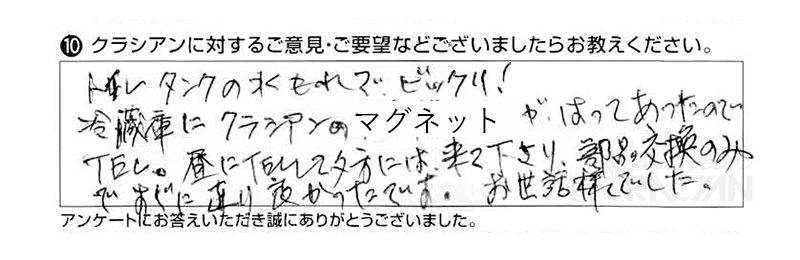 ⑩ クラシアンに対するご意見・ご要望などございましたらお教えください。
トイレタンクの水もれで、ビックリ!
冷蔵庫にクラシアンのマグネットが、はってあったので
TELし。昼にTELして夕方には、来て下さり、部品交換のみ
ですぐに直り良かったです。お世話様でした。
アンケートにお答えいただき誠にありがとうございました。